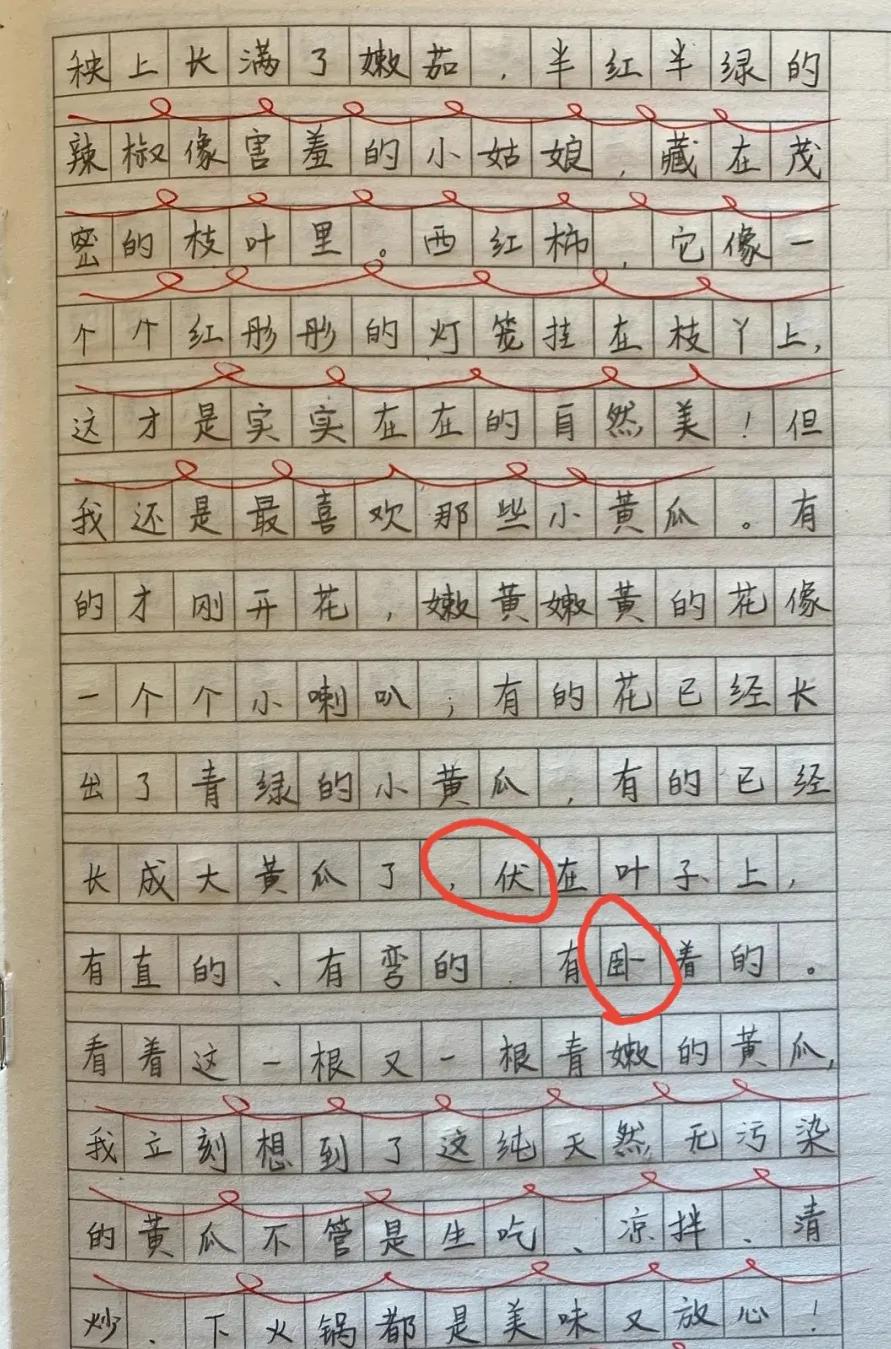 秧上长满了嫩茄，半红半绿的
辣椒像害羞的小姑娘，藏在茂
密的枝叶里。西红柿，它像一
个个红彤彤的灯笼挂在枝丫上，
这才是实实在在的自然美！但
我还是最喜欢那些小黄瓜。有
的才刚开花，嫩黄嫩黄的花像
一个个小喇叭；有的花已经长
出了青绿的小黄瓜，有的已经
长成大黄瓜了，伏在叶子上，
有直的、有弯的、有卧着的。
看着这一根又一根青嫩的黄瓜，
我立刻想到了这纯天然无污染
的黄瓜不管是生吃、凉拌、清
炒、下火锅都是美味又放心！